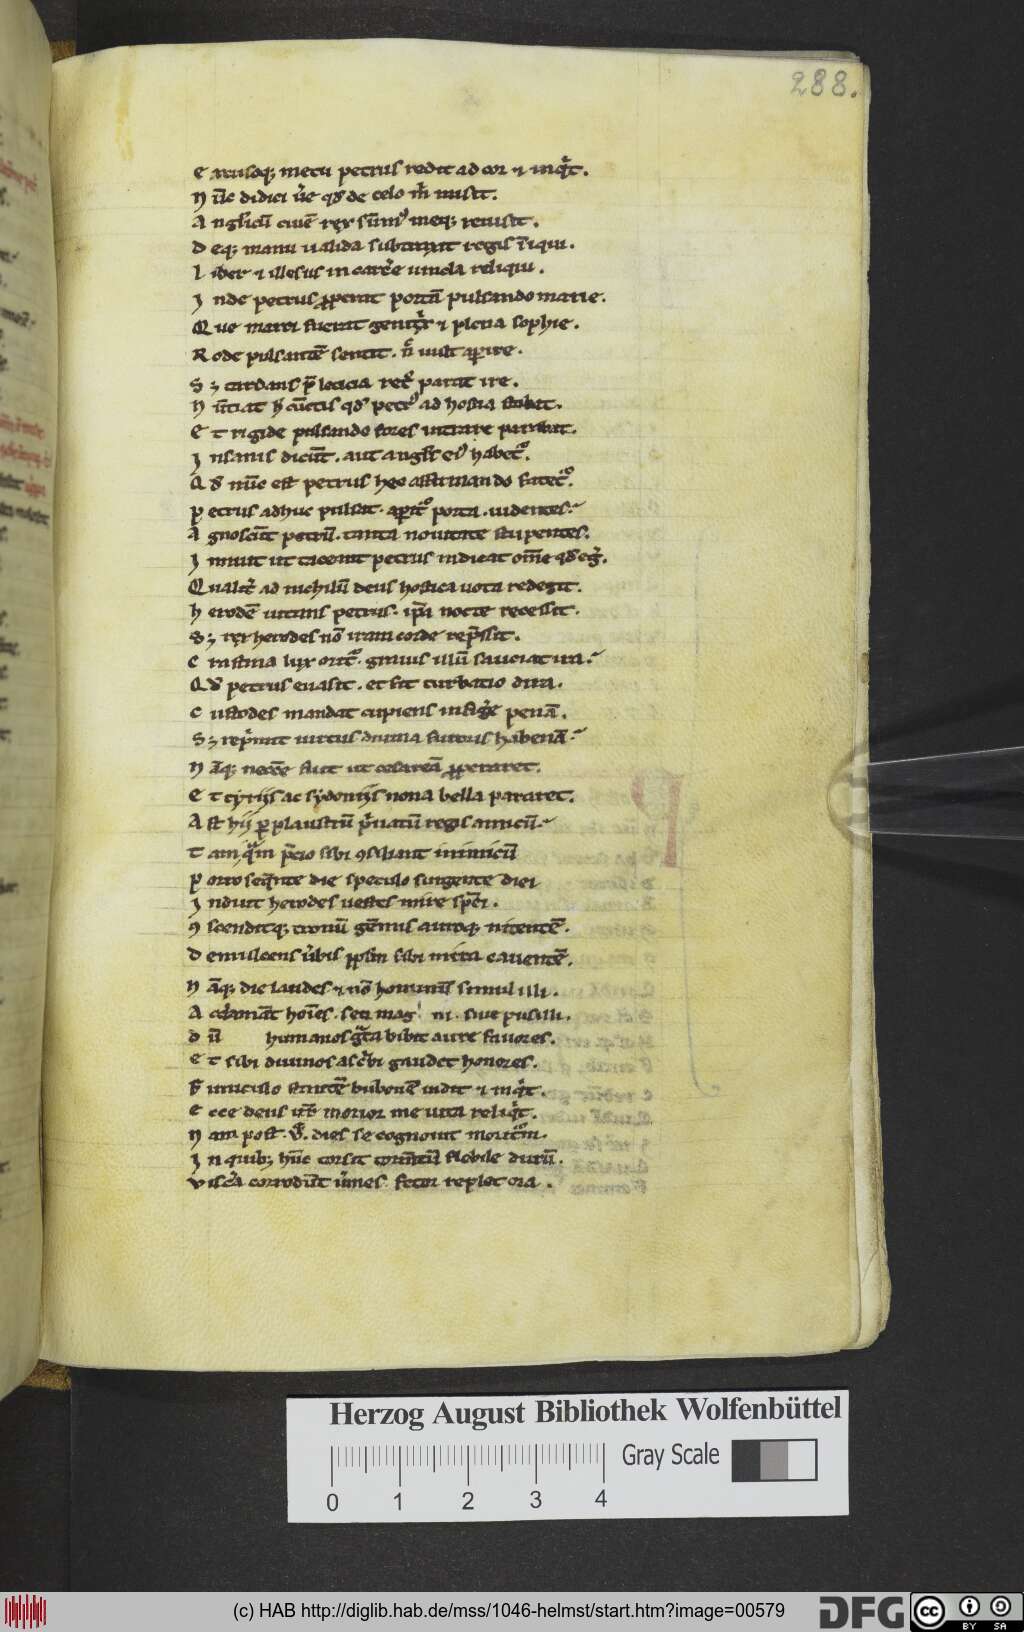 288.
E xcusoq; metu petrus redit ad cor ⁊ inq̇t.
N ūc didici u̾e qđ de celo m̊ misit.
A ngl̓icū ciuē rex sūmꝰ meq; reuisit.
D eq; manu ualida subtraxit regis iniqui.
L iber ⁊ illesus in carc̾e uincla reliqui.
I nde petrus ꝓperat portā pulsando marie.
Q ue marci fuerat genit̾x ⁊ plena sophie.
R ode pulsantē sentit. n̄ uult aꝑire.
S ; tardans p̄ leticia ret̾ parat ire.
N ūtiat h̾ cūctis qđ petrꝰ ad hostia stabat.
E t rigide pulsando fores intrare parabat.
I nsanis dicūt. aut angl̓s eiꝰ habet᷑.
Q đ nūc est petrus hec affirmando fatet᷑.
P etrus adhuc pulsat. aꝑit᷑ porta. uidentes.
A gnoscūt petrū. tanta nouitate stupentes.
I nnuit ut taceant petrus indicat om̄e qđ eg̾.
Qualit̾ ad nichilū deus hostica uota redegit.
H erodē uitans petrus. ip̄a nocte recessit.
S ; rex herodes nō iram corde rep̄ssit.
C rastina lux orit᷑. grauius illū sauciat ira.
Q đ petrus euasit. et fit turbatio dira.
C ustodes mandat cupiens infig̾e penā.
S ; rep̾mit uirtus diuina furoris habenā.
N āq; necc̄e fuit ut cesareā ꝓperaret.
E t tyriis ac sydoniis noua bella pararet.
A st hii ꝑ plaustū p̾uatū regis amicū.
T amq̄m p̄cio sibi ꝯsiliant inimicū
P orro seq̄nte die speculo surgente diei
I nduit herodes uestes mire sp̄ei.
ꝯ scenditq; tronū gēmis auroq; nitentē.
D emulcens u̾bis ꝓpl̄m sibi mira cauentē.
N āq; die laudes ⁊ nō hominis simul illi.
A cclamāt hoīes. seu mag ni. siue pusilli.
D ū humanos gr̄ta bibit aure fauores.
E t sibi diuinos asc̾bi gaudet honores.
F uniculo stantē bubonē uidit ⁊ inq̇t.
E cce deus ur̄ morior me uita reliq̇t.
N am post .v̊. dies se cognouit moritur̄m.
I n quib; hūc torsit tormētū flebile durū.
Visc̾a corrodūt u̾mes fetor replet ora .
Herzog August Bibliothek Wolfenbüttel
Gray Scale
0 1 2 3 4
(c) HAB http://diglib.hab.de/mss/1046-helmst/start.htm?image=00579
DFG
cc BY SA